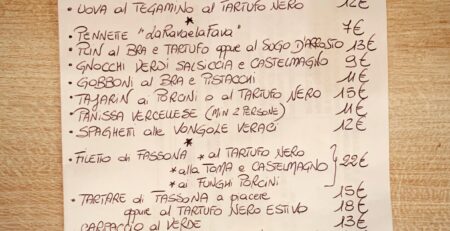 • UOVA al TEGAMINO al TARTUFO NERO 12€
*
• PENNETE "LaRavaelaFava" 7€
• PLIN al BRA e TARTUFO oppure al SUGO D'ARROSTO 13€
• GNOCCHI VERDI SALSICCIA e CASTELMAGNO 9€
• GOBBONI al BRA e PISTACCHI 11€
• TAJARIN ai PORCINI o al TARTUFO NERO 15€
• PANISSA VERCELLESE (MIN 2 PERSONE) 11€
• SPAGHETTI alle VONGOLE VERACI 12€
*
• FILETTO di FASSONA *al TARTUFO NERO
*alla TOMA e CASTELMAGNO 22€
*ai FUNGHI PORCINI
• TARTARE di FASSONA a piacere 15€
oppure al TARTUFO NERO ESTIVO 18€
CARPACCIO AL VERDE 13€